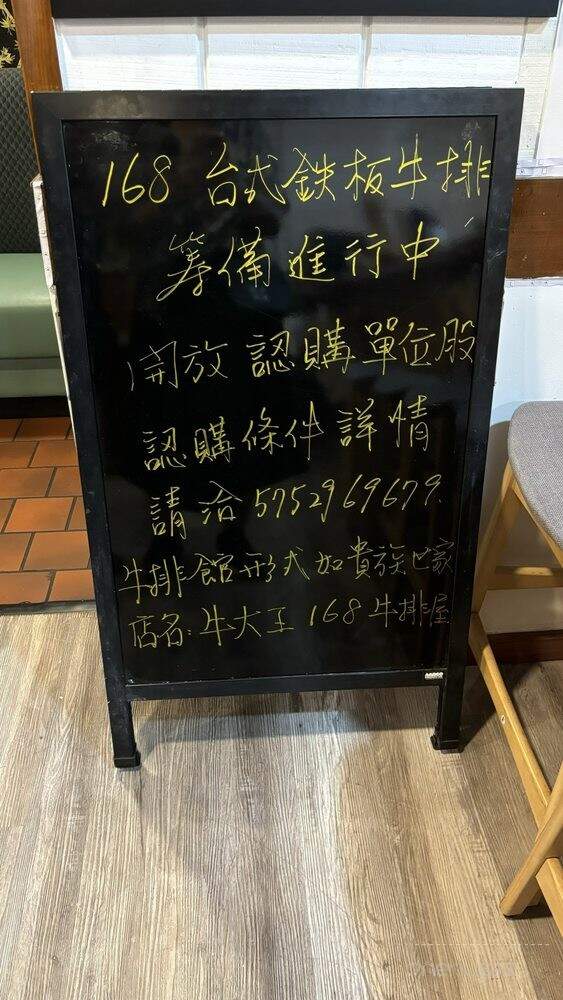 168 台式鉄板牛排
籌備進行中
開放認購單位股
認購條件詳情
請洽5752969679.
牛排館形式加貴族世家
店名:牛大王168牛排屋